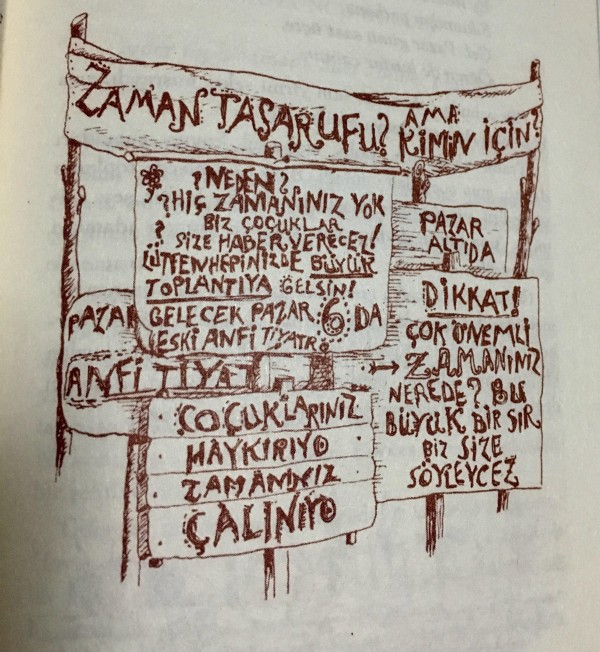 ZAMAN TASARUFU? AMA
KİMİN İÇİN?
?NEDEN?
?HİÇ ZAMANINIZ YOK
BİZ ÇOÇUKLAR
? SİZE HABER VERECEZ!
LÜTFEN HEPİNİZDE BÜYÜK
TOPLANTIYA GELSİN!
GELECEK PAZAR 6 DA
ESKİ ANFİ TİYATR
PAZAR
ALTIDA
PAZAR
ANFİ TİYAT
DİKKAT!
ÇOK ÖNEMLİ
ZAMANINIZ
NEREDE? BU
BÜYÜK BİR SIR
BİZ SİZE
SÖYLEYCEZ
ÇOÇUKLARINIZ
HAYKIRIYO
ZAMANINIZ
ÇALINIYO